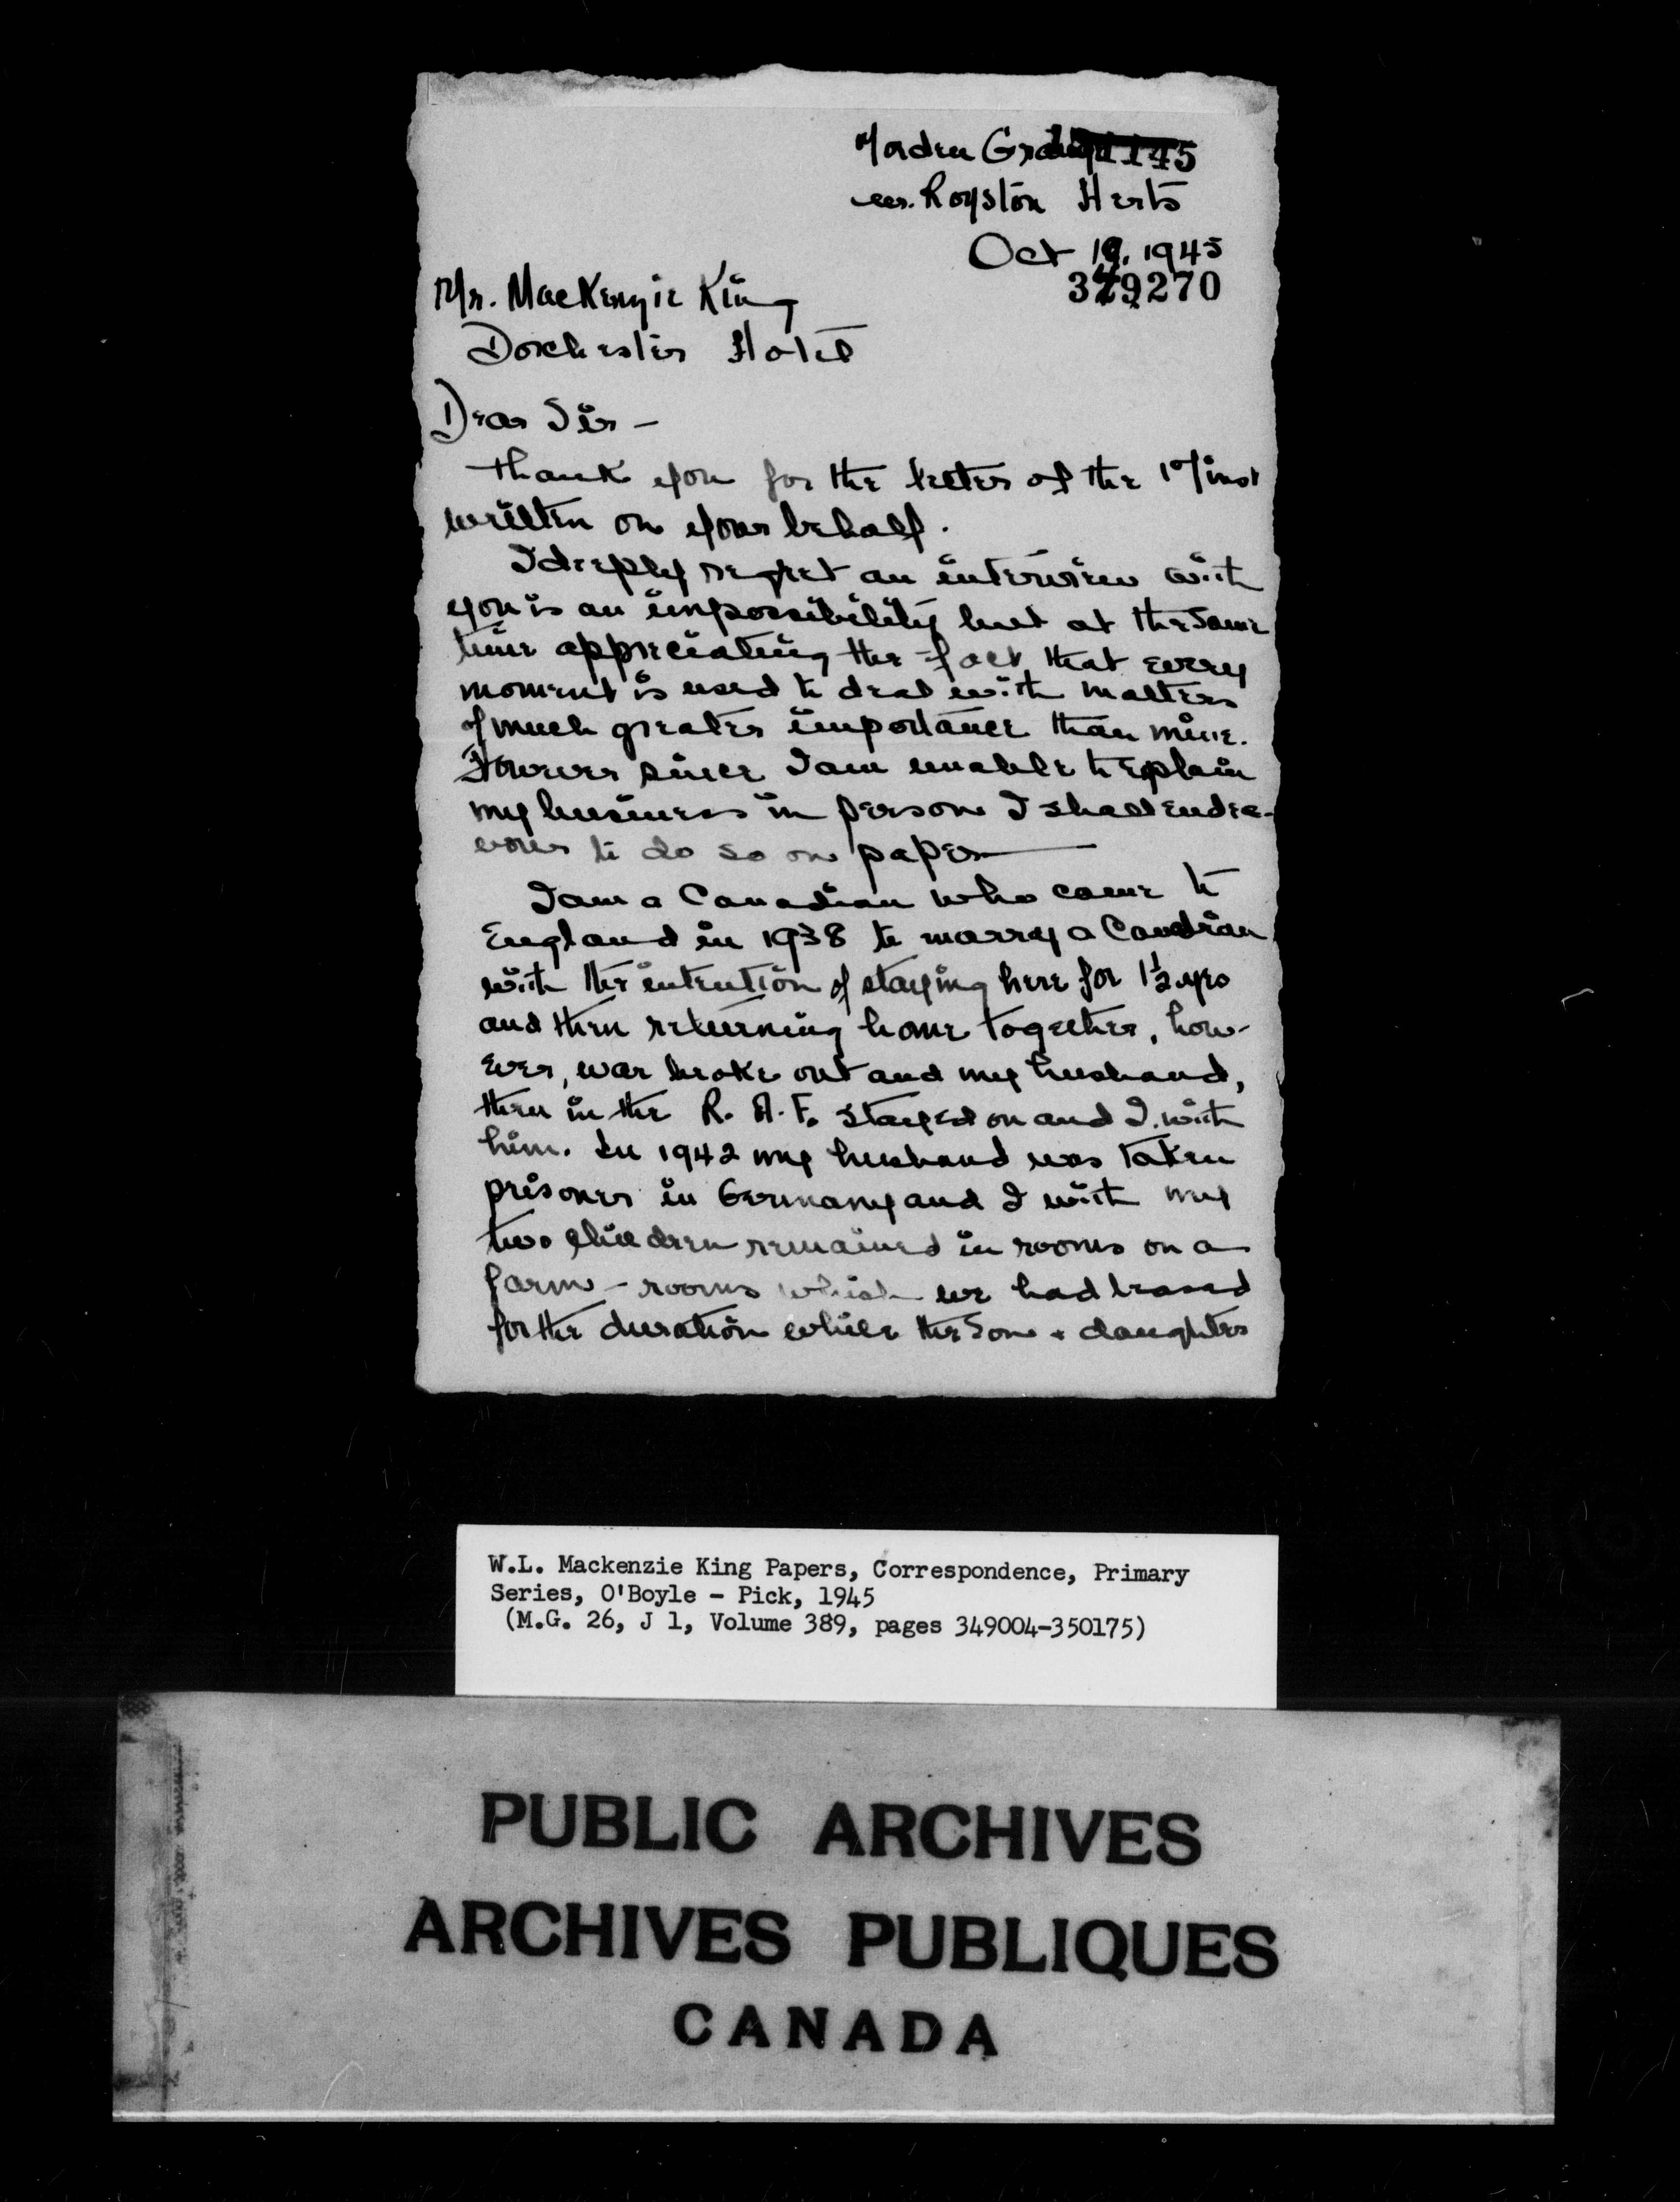 Morden Grange
nr. Royston Herts
Oct 19, 1945
349270
Mr. MacKenzie King
Dorchester Hotel
Dear Sir -
Thank you for the letter of the inst
written on your behalf.
I deeply regret an interview with
you is an impossibility but at the same
time appreciating the fact that every
moment is used to deal with matters
of much greater importance than mine.
However since I am unable to explain
my business in person I shall endea-
vour to do so on paper
I am a Canadian who came to
England in 1938 to marry a Canadian
with the intention of staying here for 1½ yrs
and then returning home together, how-
ever, war broke out and my husband,
then in the R.A.F. stayed on and I with
him. In 1942 my husband was taken
prisoner in Germany and I with my
two children remained in rooms on a
farm - rooms which we had leased
for the duration while the son + daughter
W.L. Mackenzie King Papers, Correspondence, Primary
Series, O'Boyle - Pick, 1945
(M.G. 26, J 1, Volume 389, pages 349004-350175)
PUBLIC ARCHIVES
ARCHIVES PUBLIQUES
CANADA